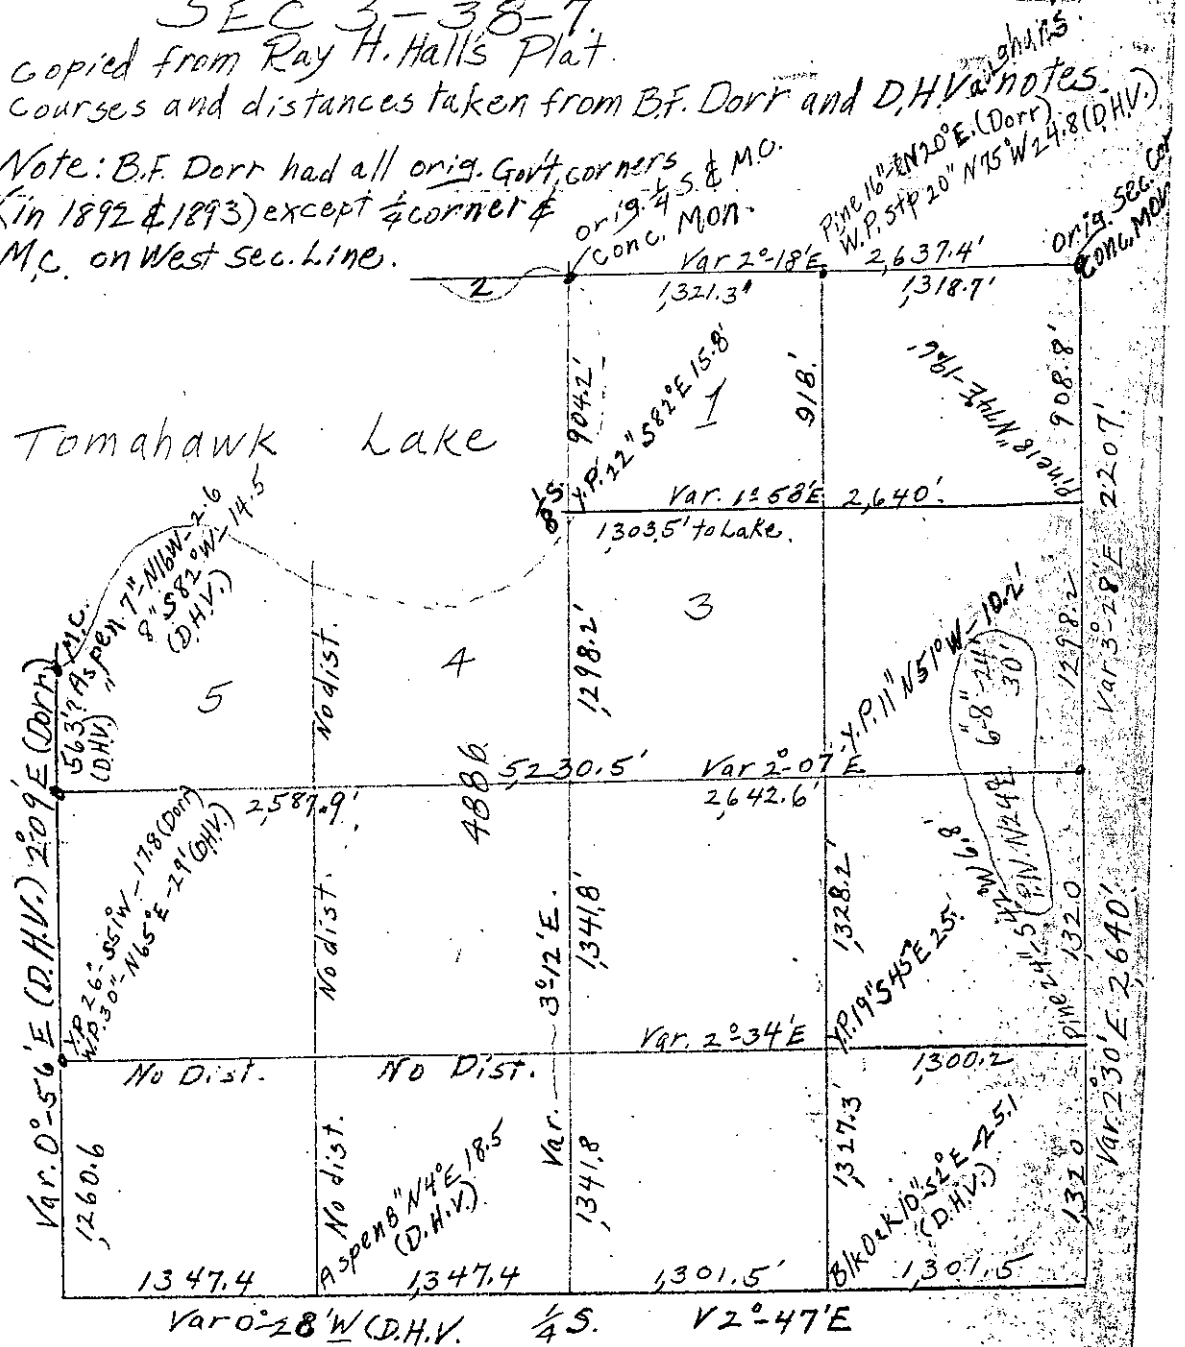 SEC 3-38-7.
copied from Ray H. Hall's Plat.
Courses and distances taken from B.F. Dorr and D.H. Vaughn's notes.
Note: B.F. Dorr had all orig. Gov't. corners
(in 1892 & 1893) except ¼ corner &
M.C. on West Sec. Line.
orig. ¼ S. & M.C.
Conc. Mon.
Pine 16" N20°E. (Dorr)
W.P. Stp 20" N75°W 24.8 (D.H.V.)
orig. Sec. Cor
Conc. Mon
Var 2°-18'E. 2,637.4'
2
1,321.3'
1,318.7'
904.2'
Y.P. 22" S82°E 15.8'
1
918.'
Pine 18" N74E-19.6'
908.8'
Var 3°-28'E 2207.'
Tomahawk Lake
1/8 S.
Var. 1°58'E 2,640'.
1,303.5' to Lake.
M.C.
Aspen 7"-N16W-2.6
" 8" S82°W-14.5
(D.H.V.)
563'?
(D.H.V.)
5
No dist.
4
1,298.2'
3
Y.P. 11" N51°W-10.2'
6"-8"-24'
30'
1298.2'
4886.
5,230.5' Var 2°-07'E
2,587.9'
2,642.6'
Var. 0°-56'E (D.H.V.) 2°09'E (Dorr)
Y.P. 26"-S51W-17.8 (Dorr)
W.P. 30"-N65°E-29' (D.H.V.)
No dist.
Var. 3°-12'E.
1,341.8'
1,328.2'
Y.P. 19" S45°E 25.'
Pine 24"-S42°W 6.8'
(P.N. N24E
1,320
Var. 2°30'E 2,640.'
Var. 2°-34'E
No Dist. No Dist.
1,300.2
1,260.6
No dist.
Aspen 8" N4°E 18.5
(D.H.V.)
1,341.8
1,327.3'
Blk Oak 10"-S2°E-25.1
(D.H.V.)
1,320
1347.4 1,347.4 1,301.5' 1,301.5
Var 0°-28'W (D.H.V. ¼ S. V 2°-47'E